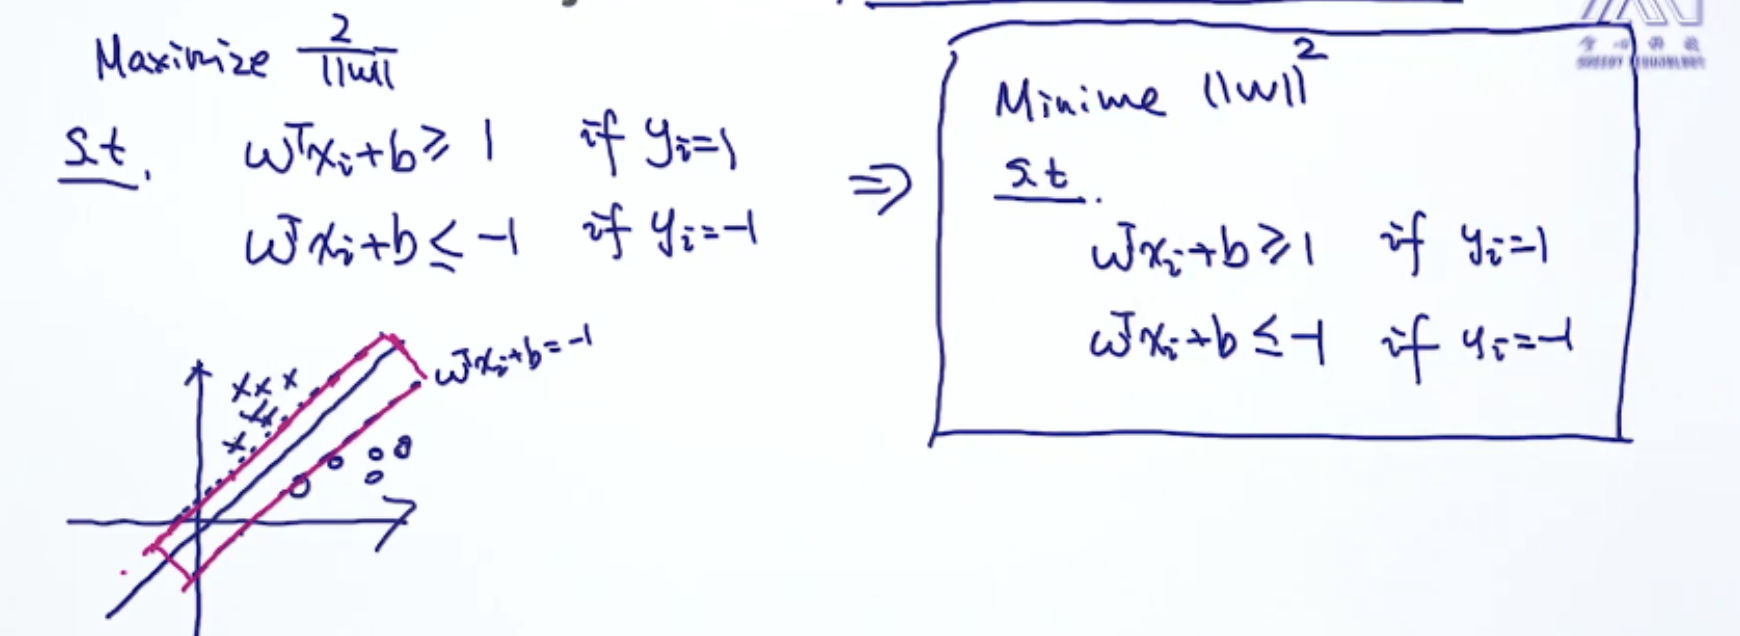 Maximize 2/||w||
s.t. wᵀxᵢ+b ≥ 1 if yᵢ=1
wᵀxᵢ+b ≤ -1 if yᵢ=-1
⇒
Minime ||w||²
s.t.
wᵀxᵢ+b ≥ 1 if yᵢ=1
wᵀxᵢ+b ≤ -1 if yᵢ=-1
wᵀxᵢ+b=-1